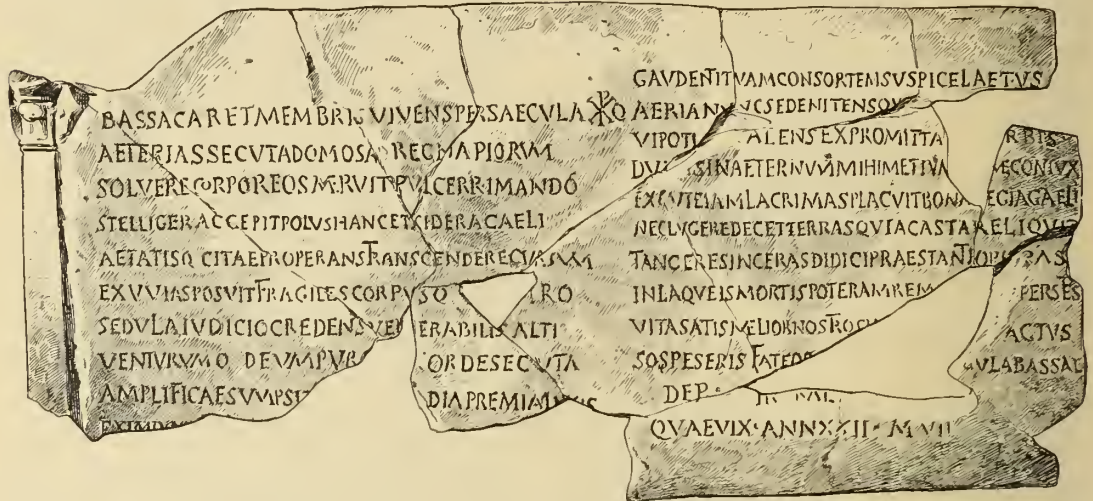 BASSACARETMEMBRIS VIVENSPERSAECVLA ☧O
AETERIASSECVTADOMOSA REGMAPIORVM
SOLVERECORPOREOSMERVITPVLCERRIMANDO
STELLIGERACCEPITPOLVSHANCETXIDERACAELI
AETATISQ CITAEPROPERANSTRANSCENDERECVRSVM
EXVVIASPOSVITFRAGILESCORPVSQ RO
SEDVLAIVDICIOCREDENSVEN ERABILIS ALTI
VENTVRVMQ DEVMPVR ORDESECVTA
AMPLIFICAESVMPSIT DIAPREMIA
GAVDENTITVAMCONSORTEMSVSPICELAETVS
AERIAN VCSEDENITENSQV
VIPOTI ALENSEXPROMITTA RBIS
DVL SINAETERNVMMIHIMETIVN ECONIVX
EXCVTEIAMLACRIMASPLACVITBONA EGIAGAELI
NECLVGEREDECETTERRASQVIACASTARELIQVIT
TANGERESINCERASDIDICIPRAESTANTIOR RAS
INLAQVEISMORTISPOTERAMREM PERSES
VITASATISMELIORNOSTROS ACTVS
SOSPESERISFATEOR VLABASSAE
DEP
QVAEVIX·ANNXXII·MVII